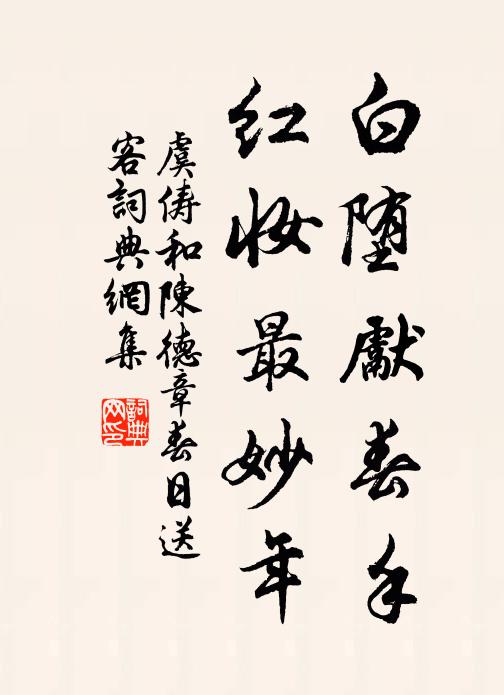 白堕獻春手
红妆最妙年
虞俦和陳德章春日送
客詞典網集
詞典网印